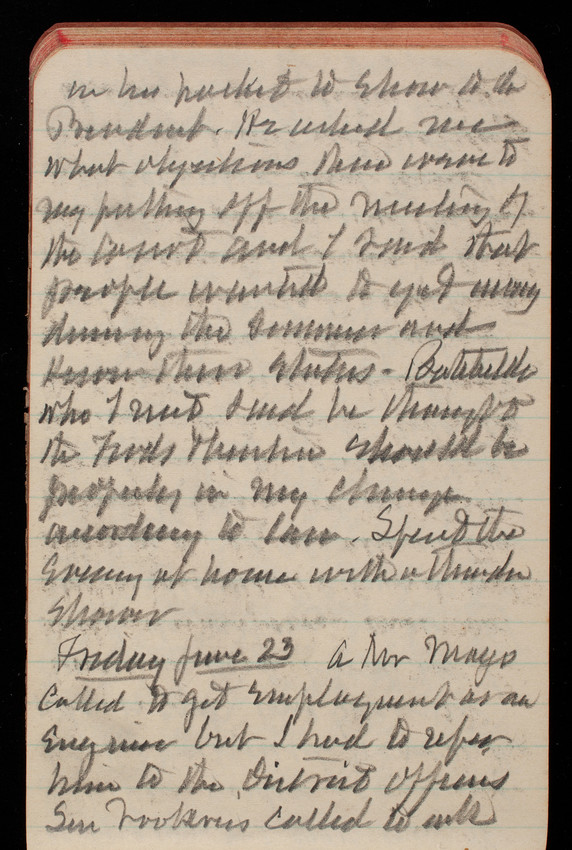 in his pocket to show to the
President. He asked me
what objections there were to
my putting off the meeting of
the Court and I said that
people wanted to get away
during the Summer and
know their status -
who I met said he thought
the Fords Theatre should be
properly in my charge
according to law. Spent the
Evening at home with a thunder
Shower
Friday June 23 A Mr Mayo
Called to get Employment as an
Engineer but I had to refer
him to the District officers
Gen called to ask